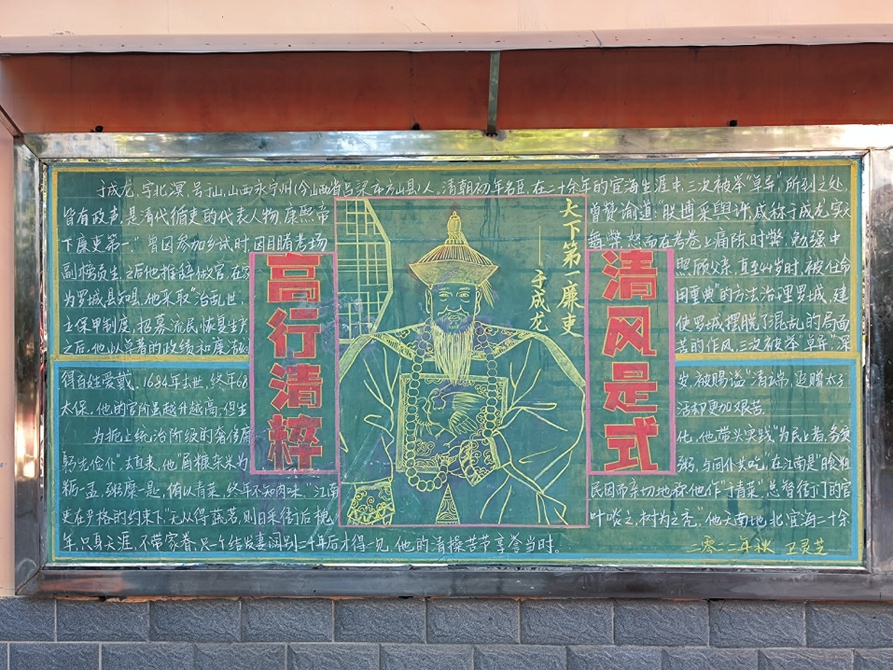 于成龙,字北溟,号于山,山西永宁州(今山西省吕梁市方山县)人,清朝初年名臣,在二十余年的官海生涯中,三次被举"卓异",所到之处,
皆有政声,是清代循吏的代表人物,康熙帝曾赞谕道:"朕博采舆评,咸称于成龙实天
下廉吏第一。"曾因参加乡试时,因目睹考场舞弊,怒而在考卷上痛陈时弊,勉强中
副榜贡生,之后他推辞做官,在家照顾父亲,直至44岁时,被任命
为罗城县知县,他采取"治乱世,用重典"的方法治理罗城,建
立保甲制度,招募流民恢复生产使罗城摆脱了混乱的局面
之后,他以卓著的政绩和廉洁刻苦的作风,三次被举"卓异",深
得百姓爱戴。1684年去世,终年68岁,被赐谥"清端",追赠太子
太保。他的官阶虽越升越高,但生活却更加艰苦。
为扼上统治阶级的奢侈腐化,他带头实践"为民上者,务须
躬先俭仆"。去直隶,他"屑糠杂米为粥,与同仆共吃",在江南是"日食粗
粝一盂,粥糜一匙,侑以青菜,终年不知肉味。江南民因而亲切地称他作"于青菜"。总督衙门的官
吏在严格的约束下,"无从得蔬茗,则日采衙后槐叶啖之,树为之秃。"他天南地北,宦海二十余
年,只身天涯,不带家眷,只一个结发妻阔别二十年后才得一见,他的清操苦节享誉当时。
天下第一廉吏
——于成龙
高行清粹
清风是式
二零二二年秋 卫灵芝